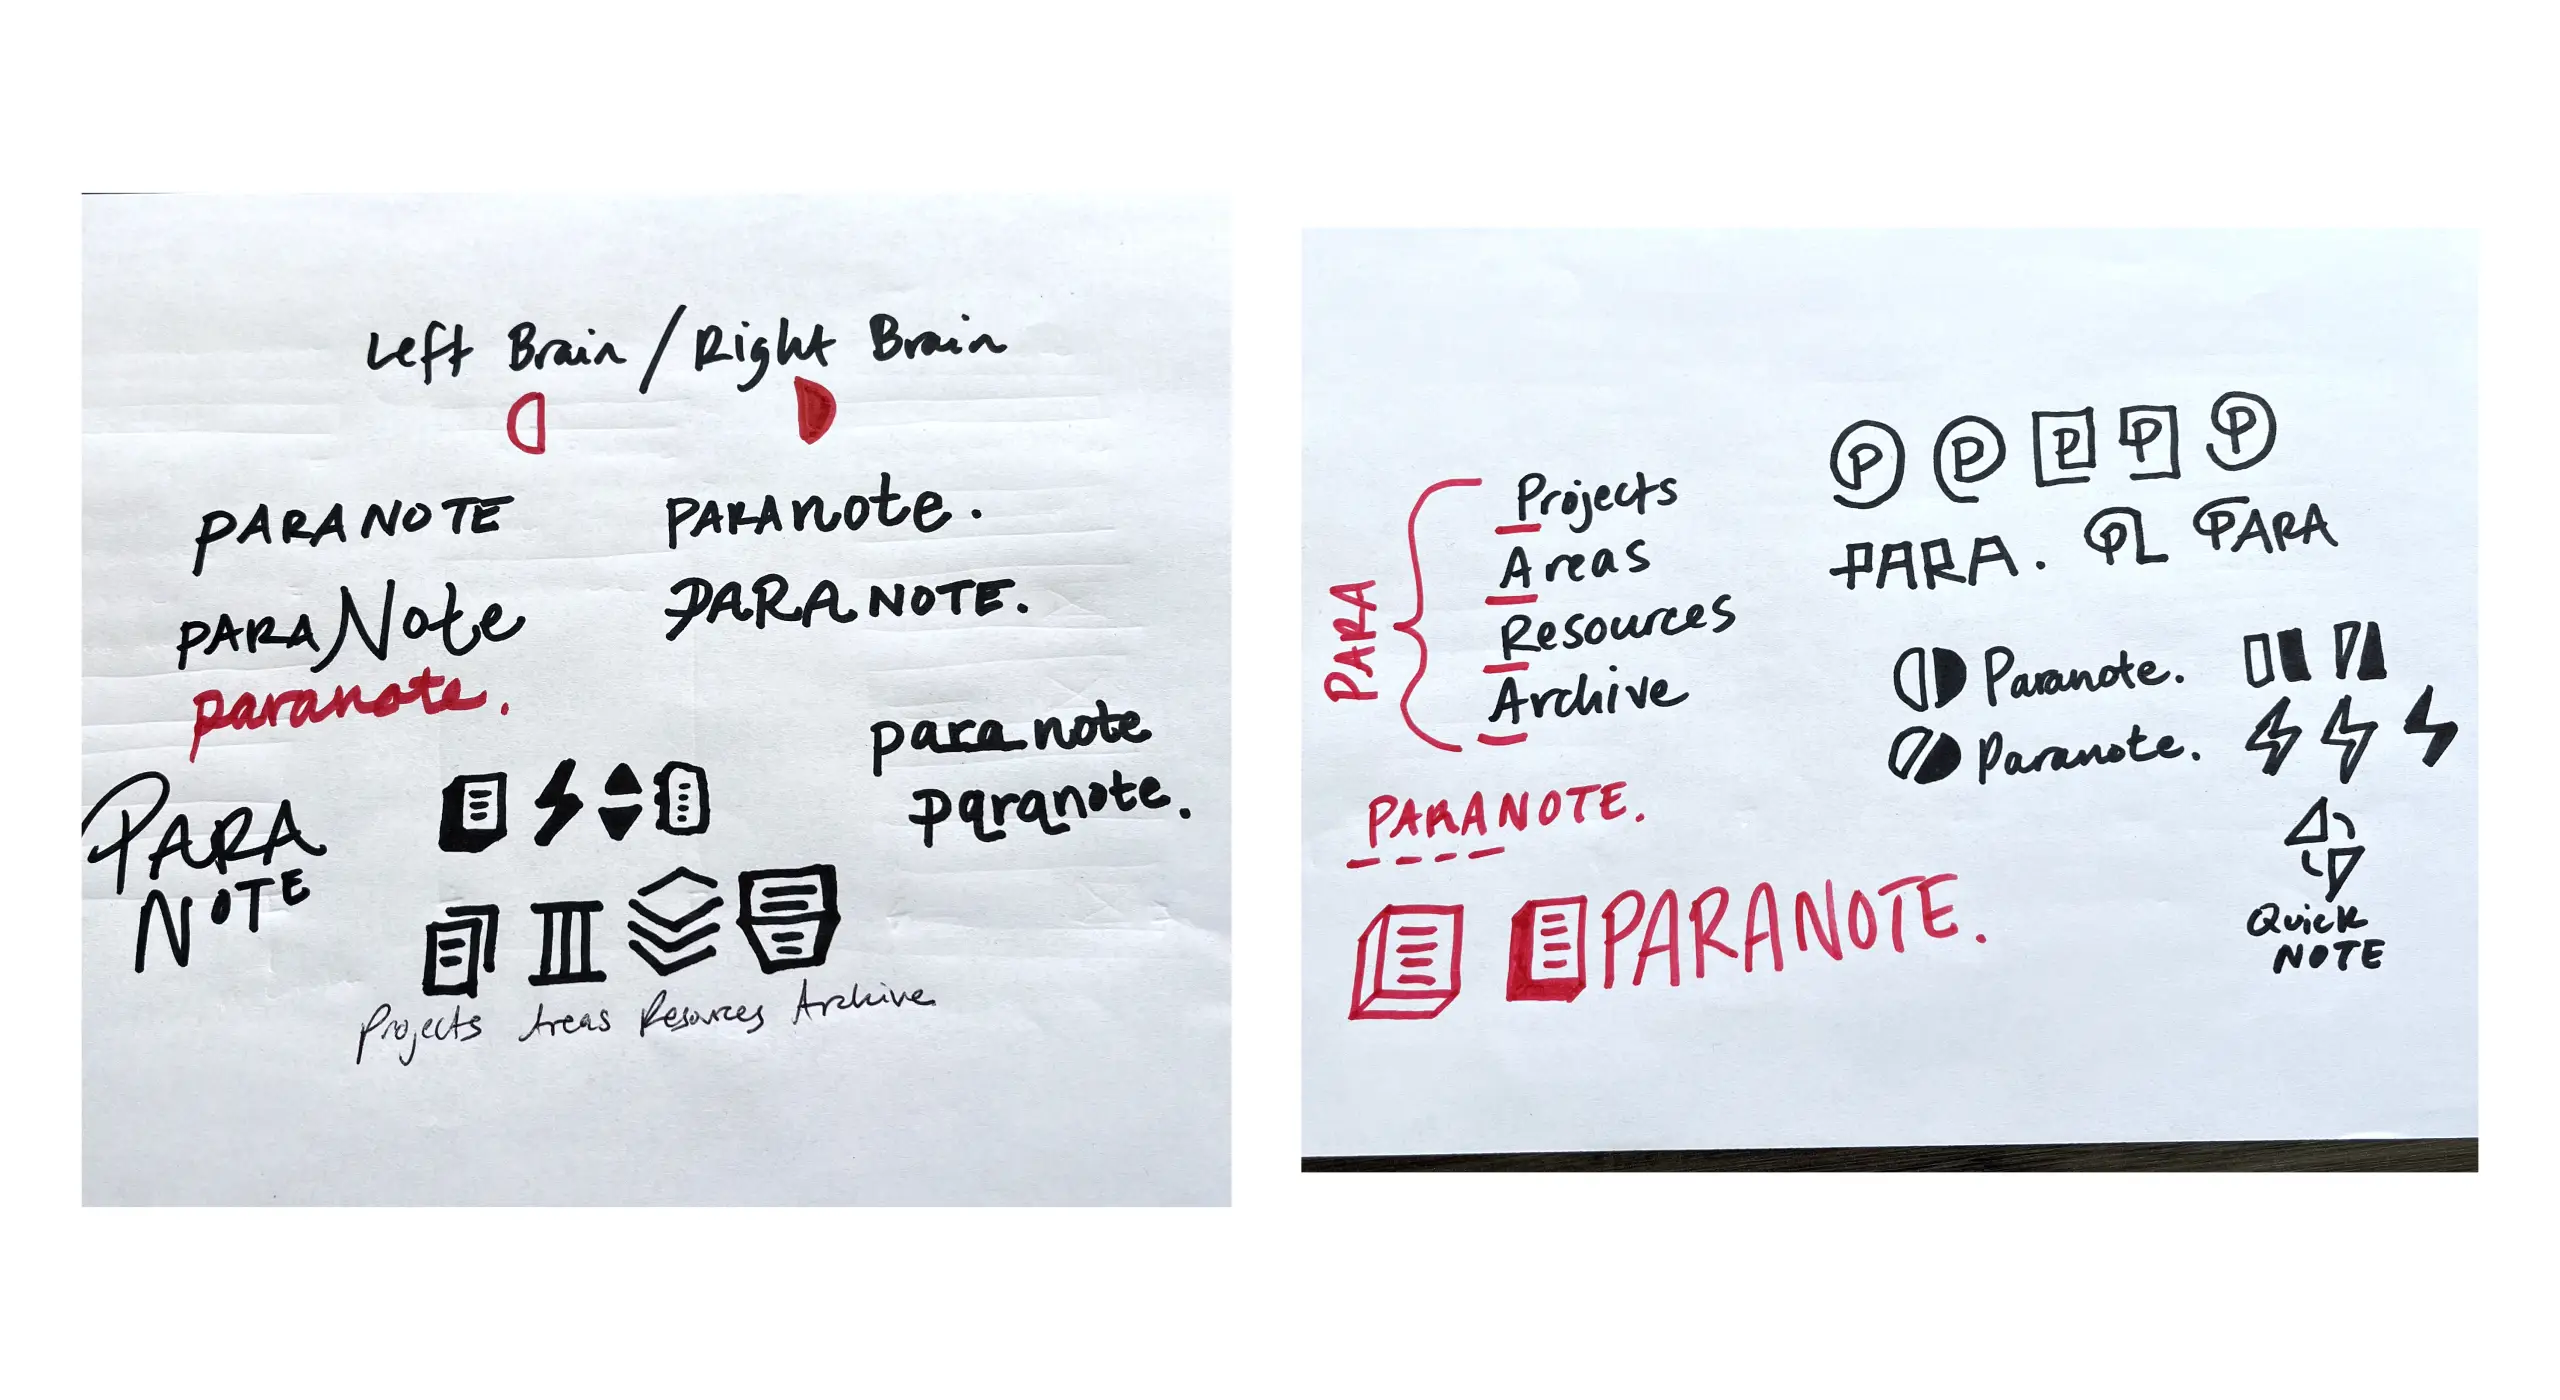 Left Brain / Right Brain
PARANOTE
PARANote
paranote.
PARAnote.
PARANOTE.
para note
paranote.
PARA
NOTE
Projects Areas Resources Archive
PARA
Projects
Areas
Resources
Archive
PARANOTE.
PARANOTE.
P P P P P
PARA. PL PARA
Paranote.
Paranote.
Quick
NOTE